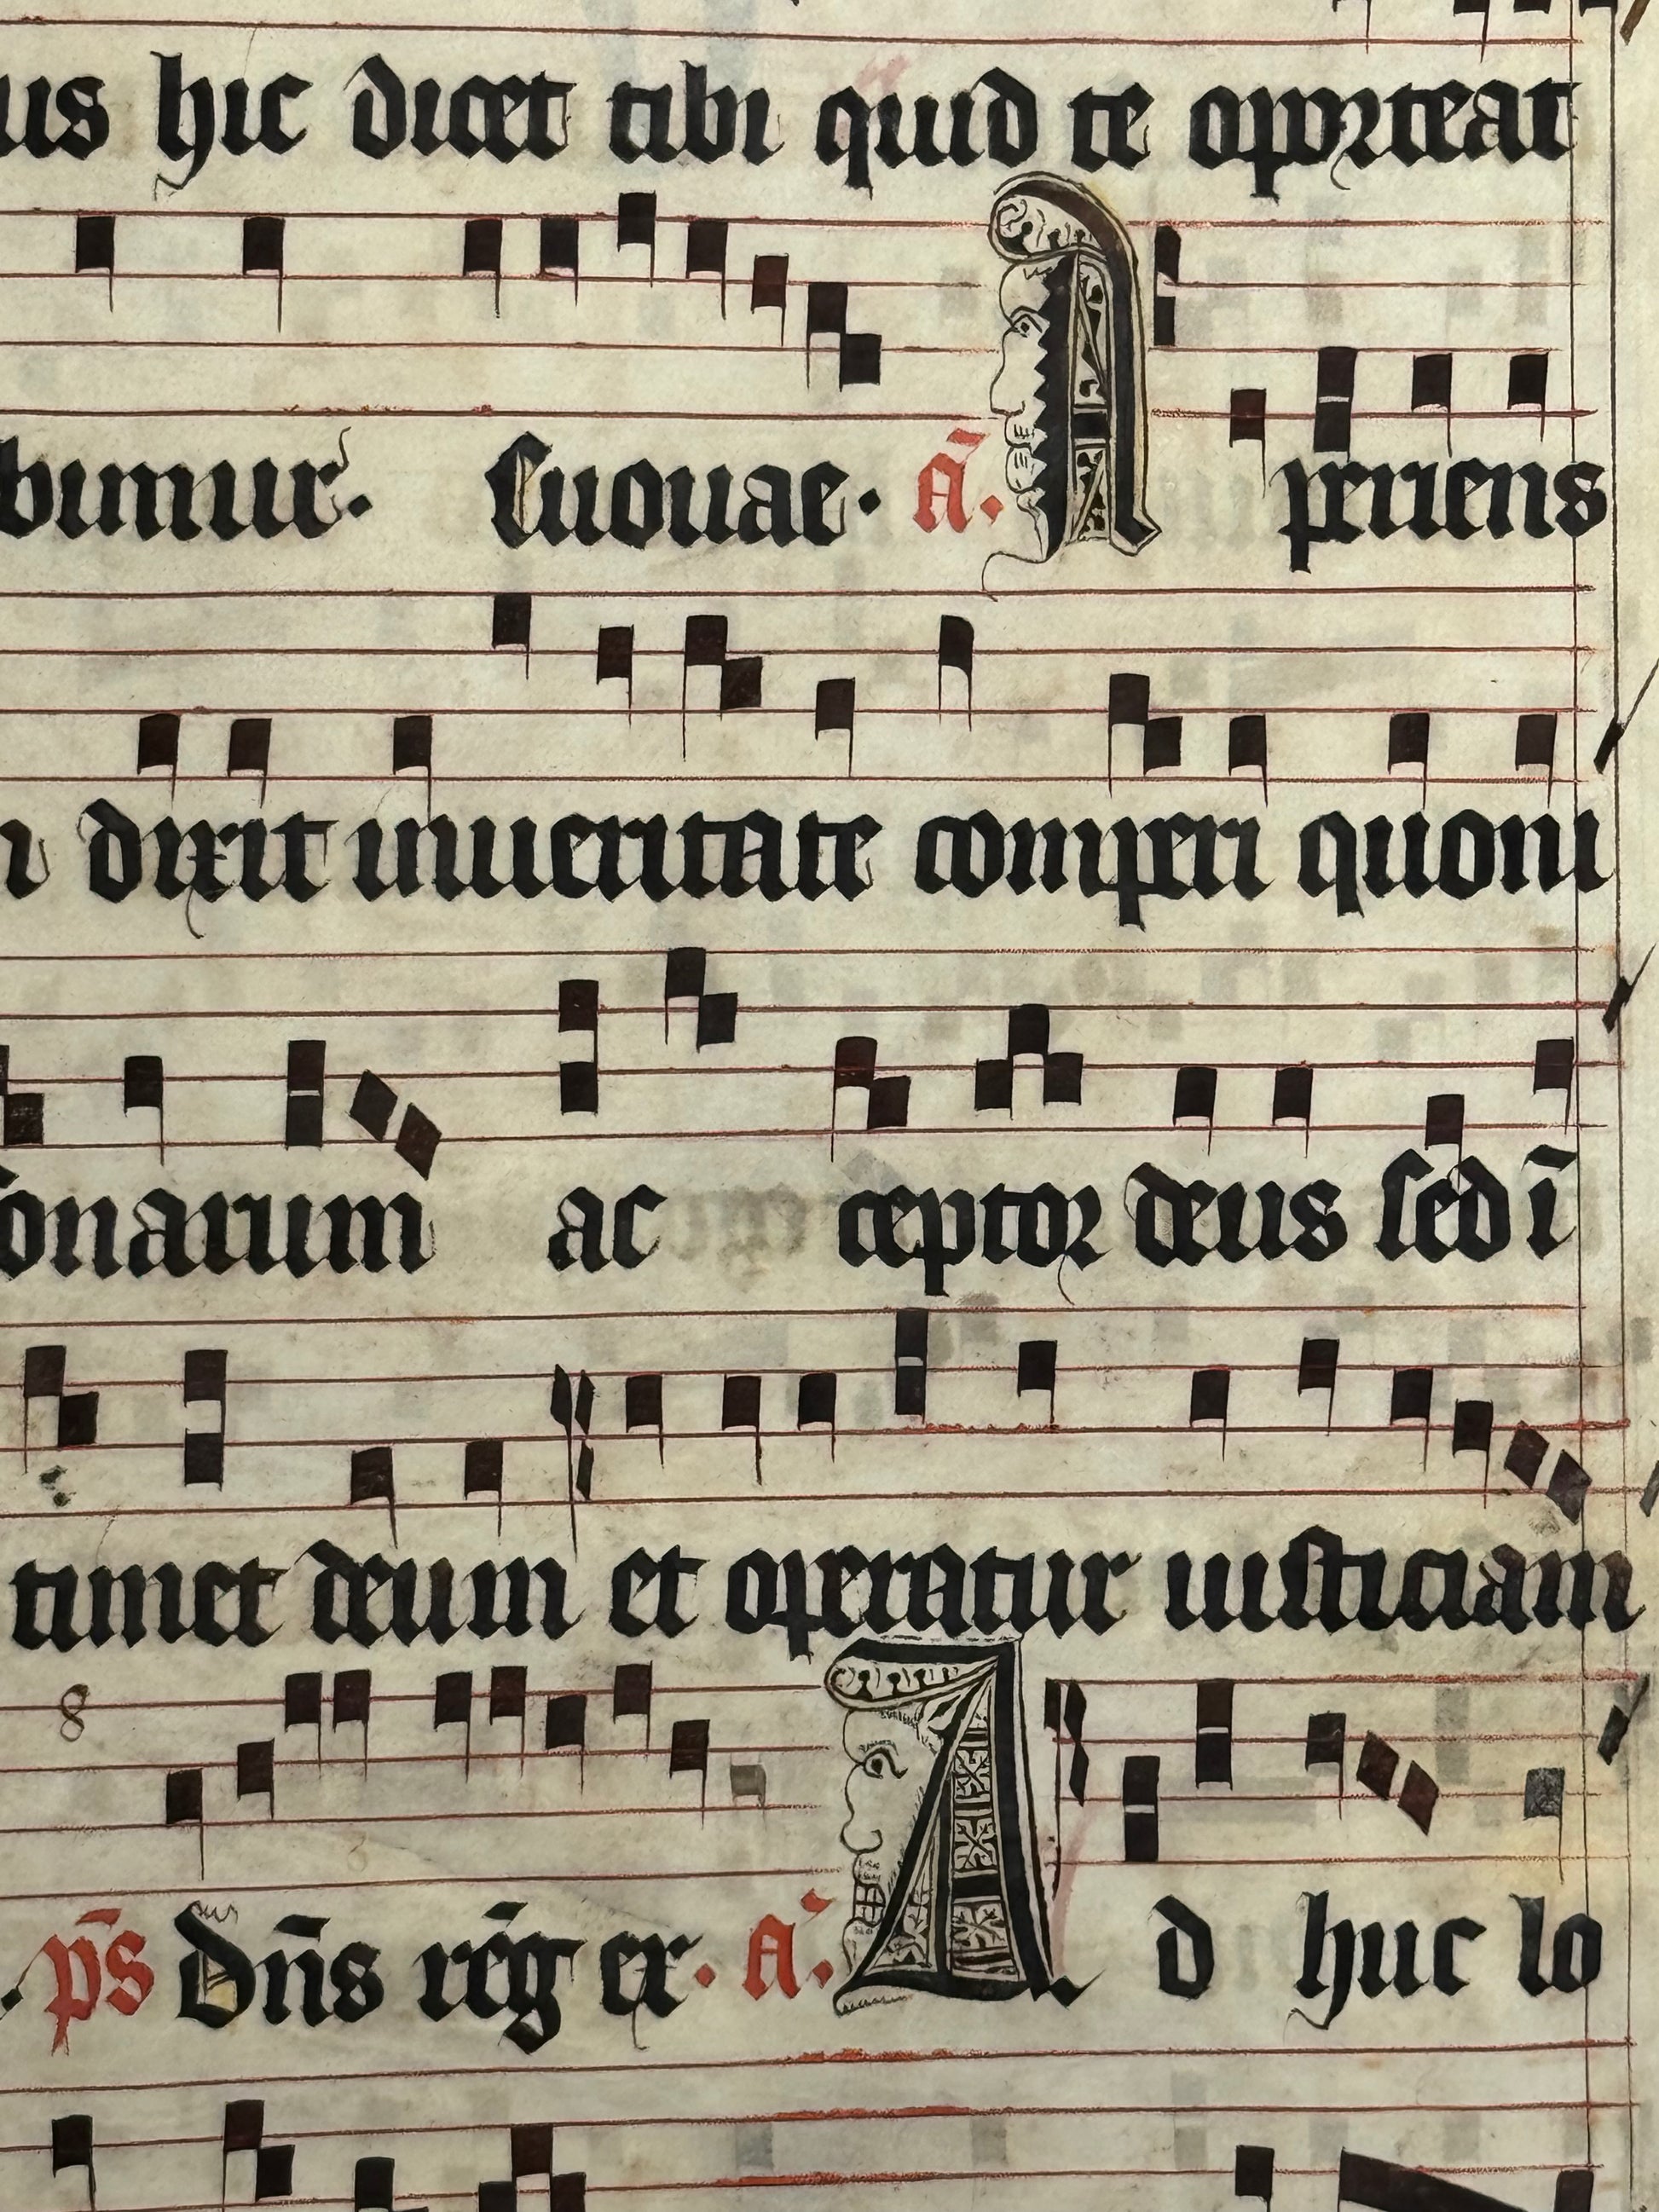 us hic dicet tibi quid te oporteat
bimur. Euouae. a̅. Aperiens
dixit inueritate comperi quoni
onarum ac ceptor deus sed i̅
timet deum et operatur iusticiam
8
p̅s dn̅s re̅g er. a̅. A d huc lo